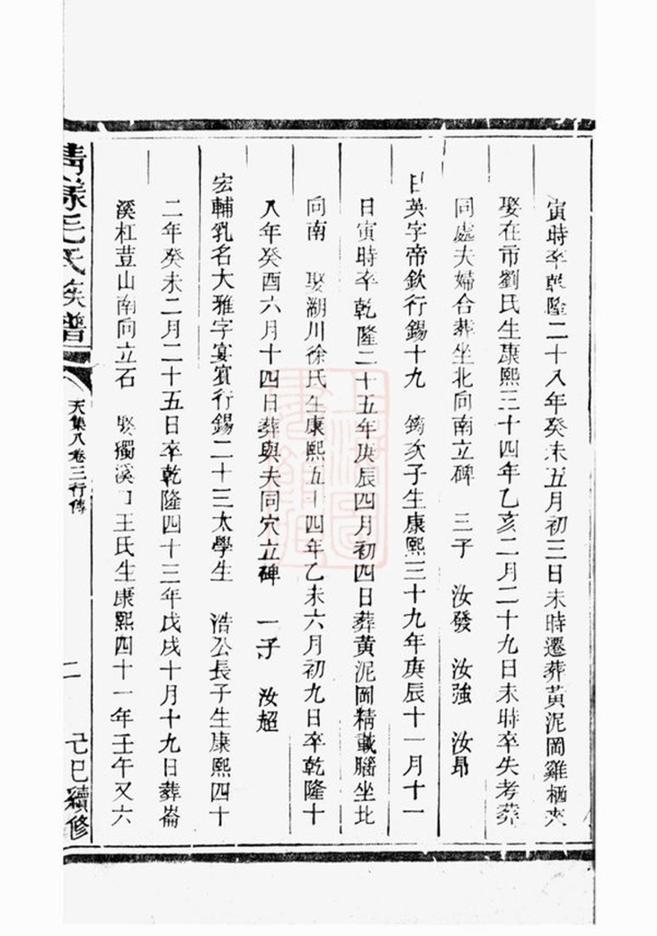 寅時卒乾隆二十八年癸未五月初三日未時遷葬黃泥岡雞栖夾
娶在市劉氏生康熙三十四年乙亥二月二十九日未時卒失考葬
同處夫婦合葬坐北向南立碑 三子 汝發 汝強 汝昂
曰英字帝欽行錫十九 錡次子生康熙三十九年庚辰十一月十一
日寅時卒乾隆二十五年庚辰四月初四日葬黃泥岡精載腦坐北
向南 娶湖川徐氏生康熙五十四年乙未六月初九日卒乾隆十
八年癸酉六月十四日葬與夫同穴立碑 一子 汝超
宏輔乳名大雅字宴賓行錫二十三太學生 浩公長子生康熙四十
二年癸未二月二十五日卒乾隆四十三年戊戌十月十九日葬崙
溪杠荳山南向立石 娶獨溪口王氏生康熙四十一年壬午又六
清漾毛氏族譜
天集八卷三行傳
二
己巳續修